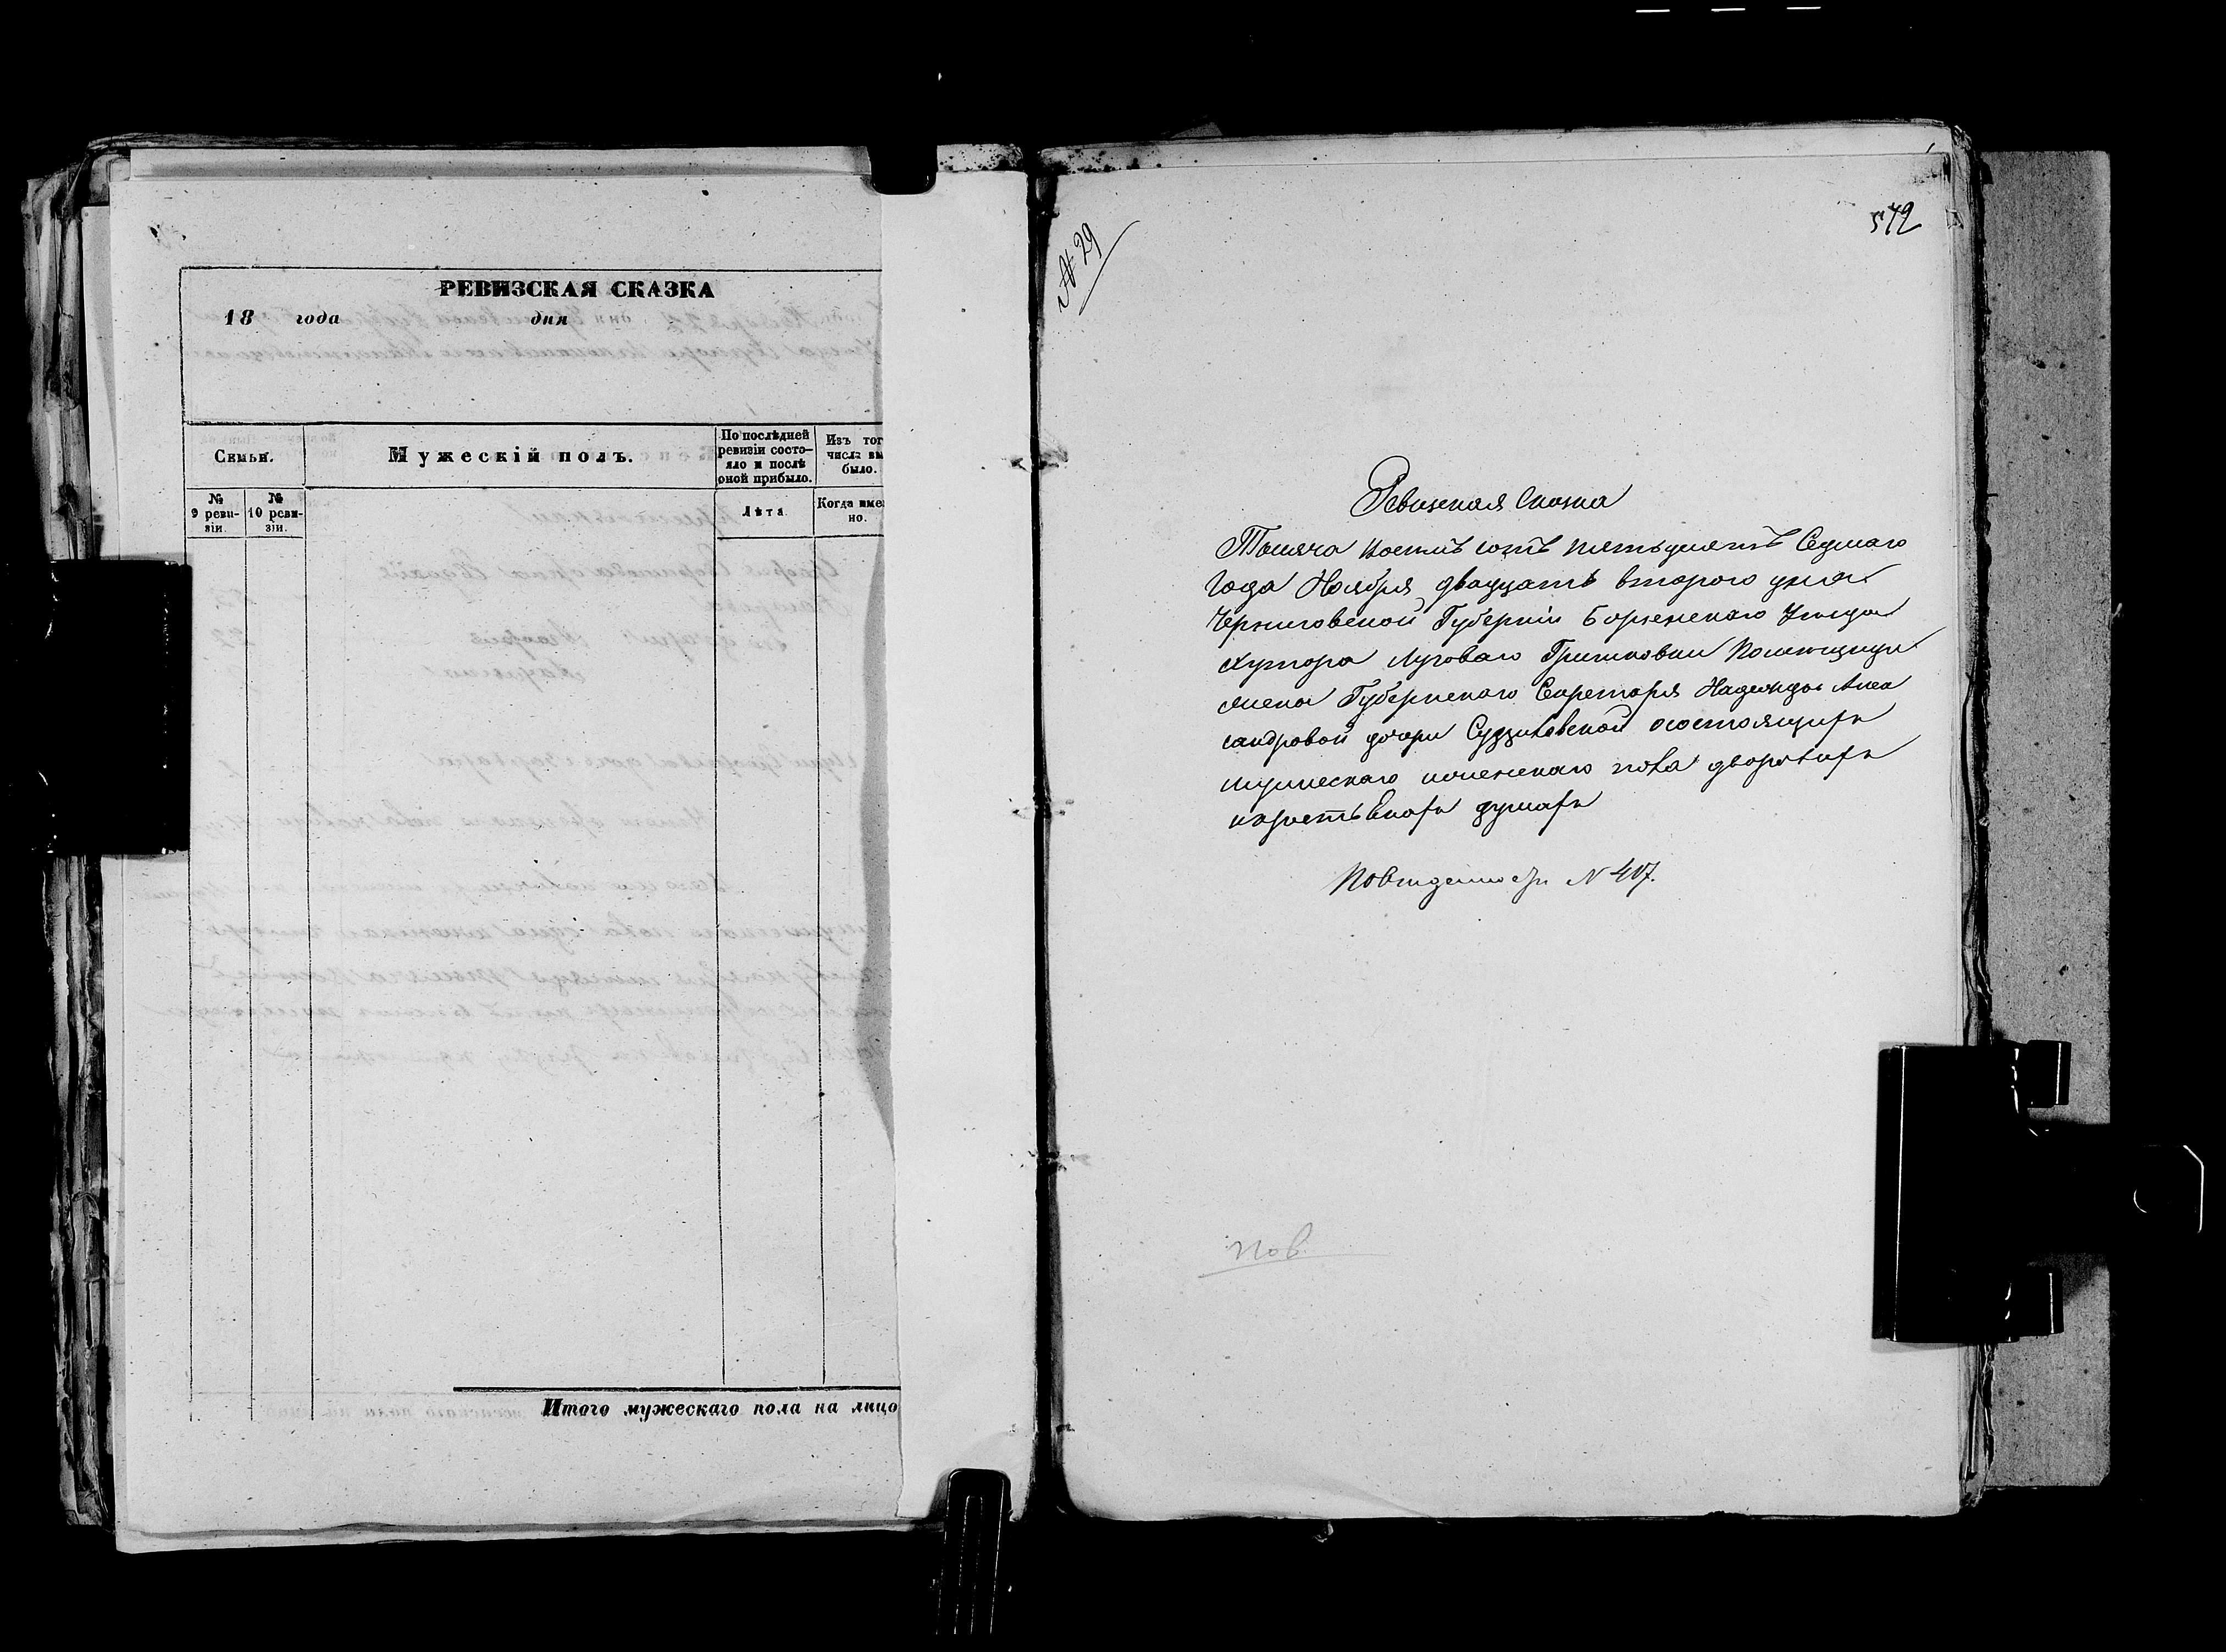 РЕВИЗСКАЯ СКАЗКА
18 года дня
Семьи.
Мужескій полъ.
По послѣдней ревизіи состо-
яло и послѣ
оной прибыло.
Изъ тог
числа вы
было.
№ 9 реви-
зіи.
№ 10 реви-
зіи.
Лѣта
Когда име
но.
Итого мужескаго пола на лицо
№ 29
572
Ревизская Сказка
Тысяча восемь сотъ пятьдесятъ Седмаго
Года Ноября двадцать втораго дня
Черниговской Губерніи Борзенскаго Уезда
Хутора Луговаго Гришковки Помещицы
жены Губернскаго Секретаря Надежды Алек
сандровой дочери состоящихъ
мужескаго иженскаго пола дворовыхъ
икрестьянахъ душахъ
N 407.
Пов.